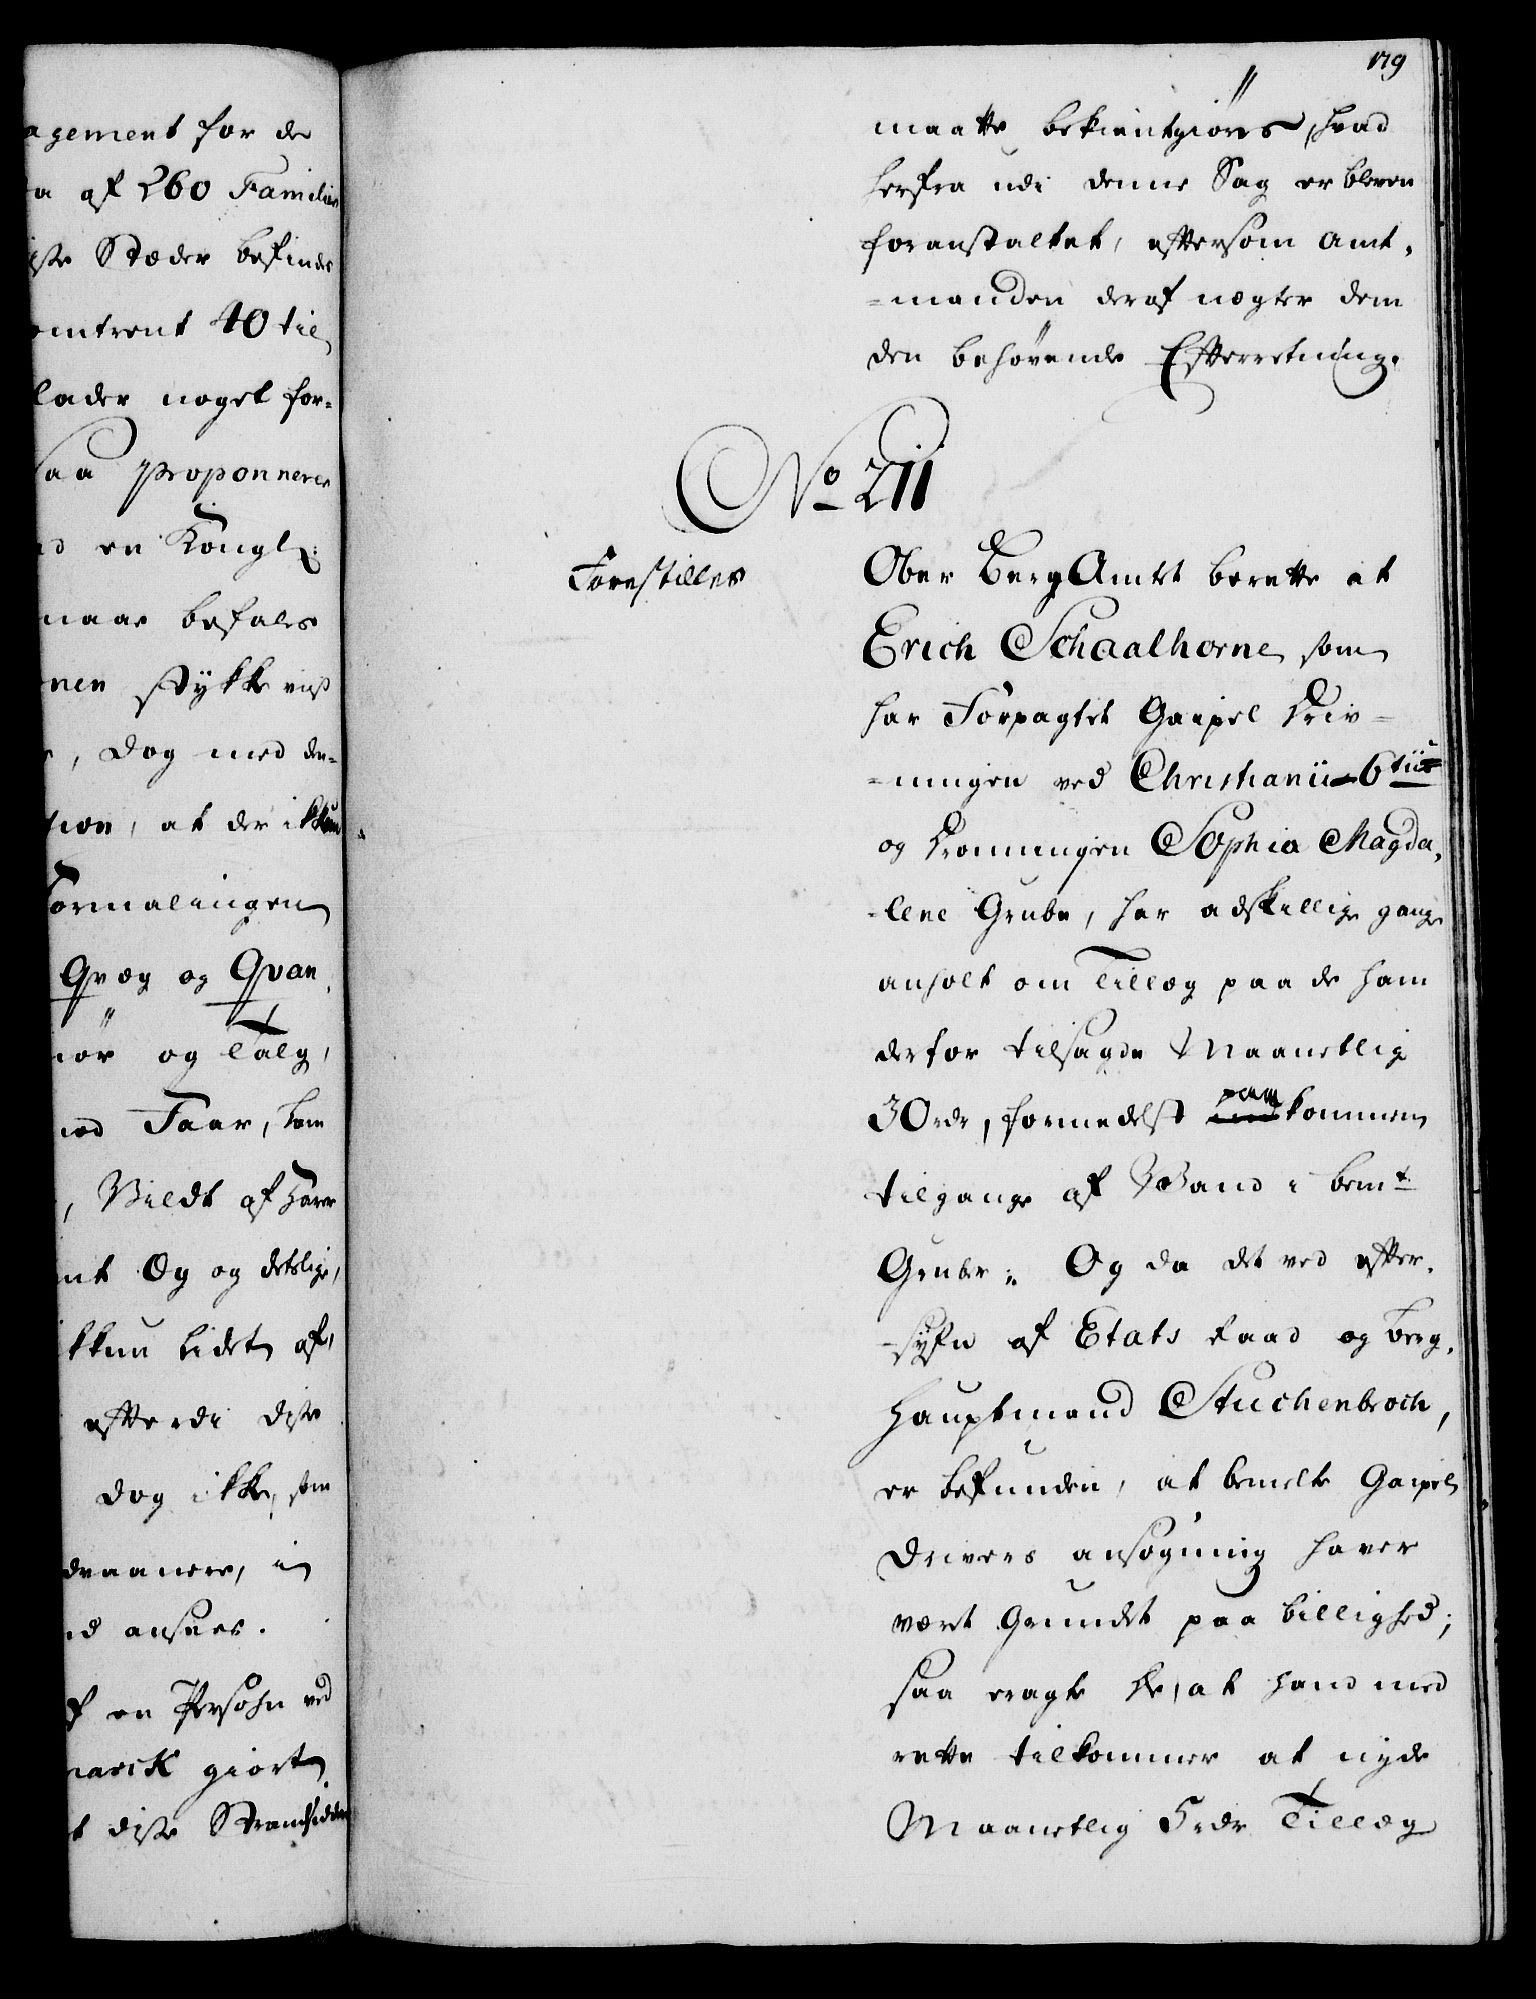 agement for de
a af 260 Familier
iste Stæder befindes
omtrent 40 til
lader noget for-
saa proponneres
ed en Kongl:
naar befales
nen stykkeviis
, dog med den-
tion, at der ikkun
Formalingen
Qvæg og Qvan
iör og Talg,
med Faar, som
, Vildt af Harer
mt Og og deslige,
ikkun lidet af,
efterdi disse
dog ikke, som
draanere, in
ed ansees.
af en Persohn ved
marck giort
t disse Strandsidder
179
maatte bekientgiöres, hvad
herfra udi denne Sag er bleven
foranstaltet, eftersom Amt-
=manden deraf nægter dem
den behövende Efterretning.
No 211
Forestilles
Ober Berg Amtet berette at
Erich Schaalhorne som
har Forpagtet Gaipel Driv=
=ningen ved Christianii 6tii
og Dronningen Sophia Magda-
=lene Grube, har adskillige gange
anholt om Tillæg paa de ham
derfor tilsagde Maanetlig
30 rdr, formedelst paakommen
tilgange af Wand i bemte
Gruber; Og da det ved efter-
=syn af Etats Raad og Berg-
Hauptmand Stuckenbroch,
er befunden, at bemelte Gaipel
Drivers ansögning haver
vært Grundet paa billighed;
saa eragte de, at hand med
rette tilkommer at nyde
Maanetlig 5 rdr Tillæg